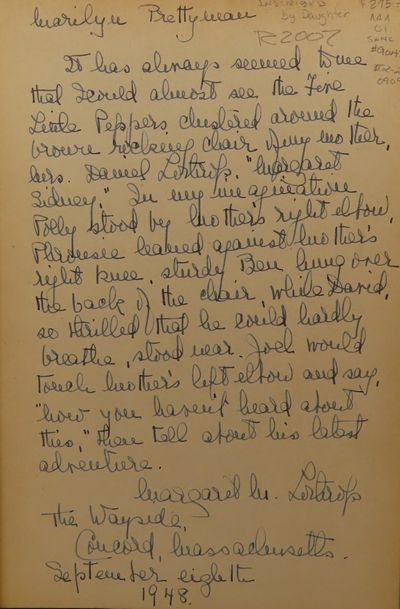 Marilyn Prettyman
Inscribed
by Daughter
R2007
F275-
It has always seemed to me
that I could almost see the Five
Little Peppers clustered around the
brown rocking chair of my mother,
Mrs. Daniel Lothrop, "Margaret
Sidney." In my imagination
Polly stood by Mother's right elbow,
Phronsie leaned against Mother's
right knee, sturdy Ben hung over
the back of the chair, while David,
so thrilled that he could hardly
breathe, stood near. Joel would
touch Mother's left elbow and say,
"Now you haven't heard about
this," then tell about his latest
adventure.
Margaret M. Lothrop
The Wayside,
Concord, Massachusetts.
September eighth
1948.